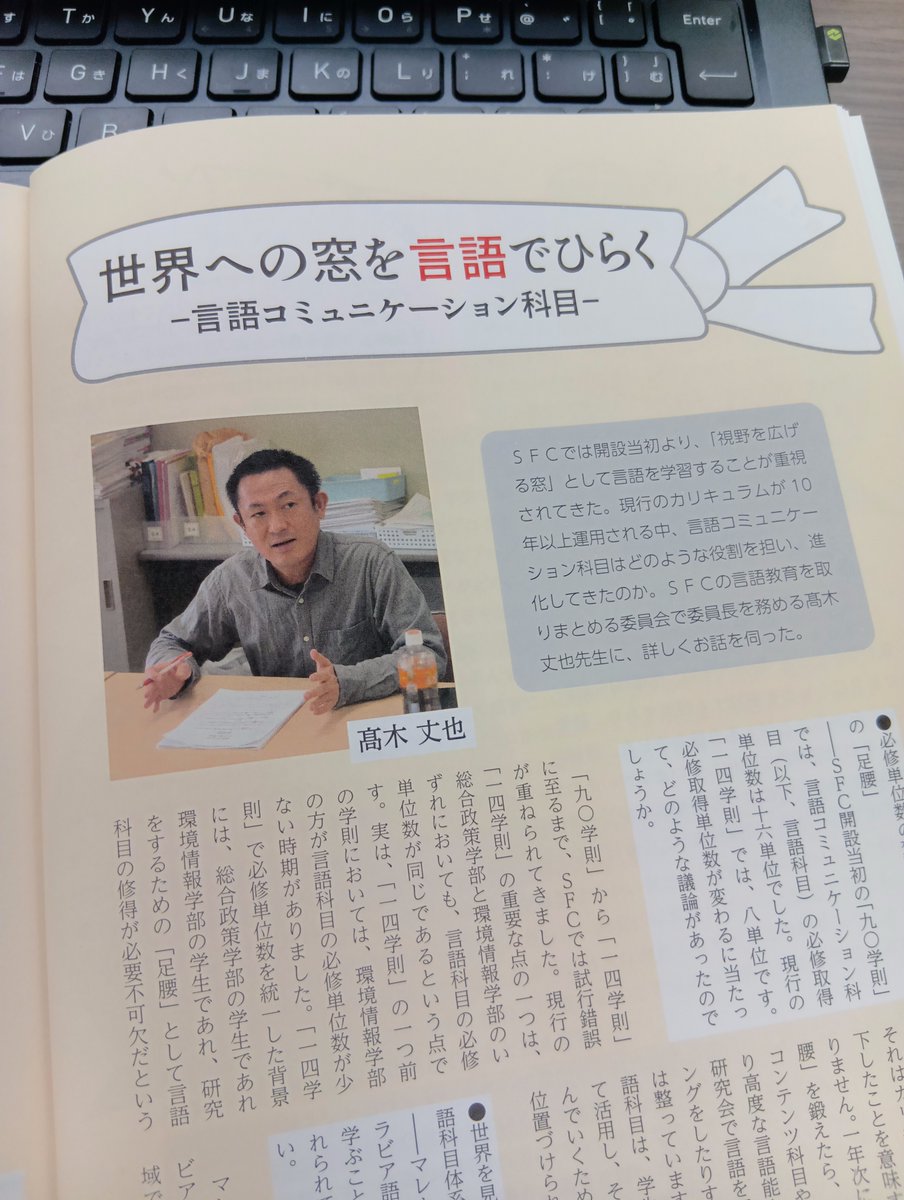 T か
Y ん
U な
I に
O ら
P せ
@ ゛
[ 「
Enter
G き
H く
J ま
K の
L り
; れ
: け
] む
V ひ
世界への窓を言語でひらく
−言語コミュニケーション科目−
髙木 丈也
ＳＦＣでは開設当初より、「視野を広げ
る窓」として言語を学習することが重視
されてきた。現行のカリキュラムが 10
年以上運用される中、言語コミュニケー
ション科目はどのような役割を担い、進
化してきたのか。ＳＦＣの言語教育を取
りまとめる委員会で委員長を務める髙木
丈也先生に、詳しくお話を伺った。
●必修単位数の
の「足腰」
――SFC開設当初の「九〇学則」
では、言語コミュニケーション科
目（以下、言語科目）の必修取得
単位数は十六単位でした。現行の
「一四学則」では、八単位です。
必修取得単位数が変わるに当たっ
て、どのような議論があったので
しょうか。
「九〇学則」から「一四学則」
に至るまで、SFCでは試行錯誤
が重ねられてきました。現行の
「一四学則」の重要な点の一つは、
総合政策学部と環境情報学部のい
ずれにおいても、言語科目の必修
単位数が同じであるという点で
す。実は、「一四学則」の一つ前
の学則においては、環境情報学部
の方が言語科目の必修単位数が少
ない時期がありました。「一四学
則」で必修単位数を統一した背景
には、総合政策学部の学生であれ
環境情報学部の学生であれ、研究
をするための「足腰」として言語
科目の修得が必要不可欠だという
それはカリ
下したことを意味す
りません。一年次に
腰」を鍛えたら、
コンテンツ科目や
り高度な言語能
研究会で言語を
ングをしたりす
は整っています
語科目は、学
て活用し、そ
んでいくため
位置づけられ
●世界を見
――マレ
語科目体系
ラビア語
学ぶこと
れられて
い。
マ
ビア
域で